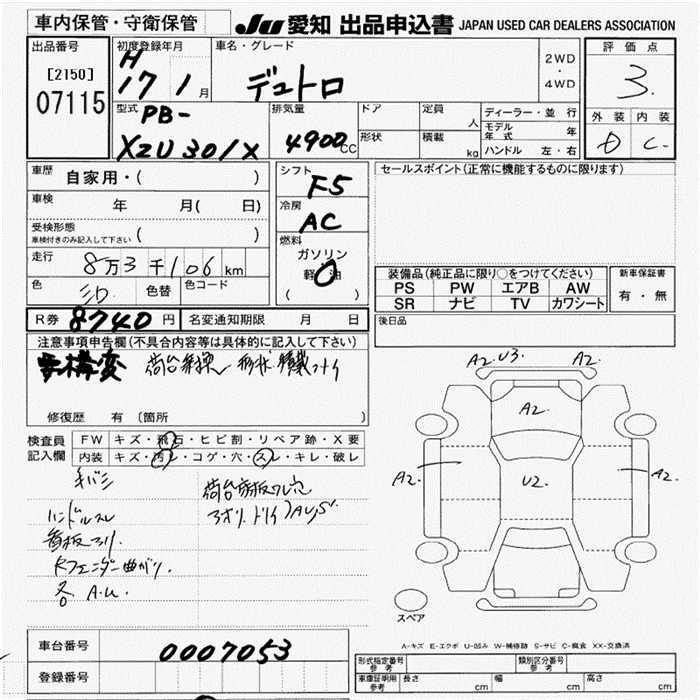 車内保管・守衛保管
JU 愛知 出品申込書 JAPAN USED CAR DEALERS ASSOCIATION
出品番号
[2150]
07115
初度登録年月
H
17 1月
車名・グレード
デュトロ
2WD
・
4WD
評価点
3.
外装 内装
D C
型式
PB-
XZU301X
排気量
4900cc
ドア
形状
定員 人
積載 kg
ディーラー・並行
モデル年式 年
ハンドル 左・右
車歴
自家用・( )
車検
年 月( 日)
受検形態
車検付きのみ記入して下さい ( )
走行
8万3千106km
色
色替
色コード
シフト
F5
冷房
AC
燃料
ガソリン
軽油
( )
セールスポイント(正常に機能するものに限ります)
装備品(純正品に限り○をつけてください)
PS PW エアB AW
SR ナビ TV カワシート
新車保証書
有・無
後日品
R券 8740円
名変通知期限 月 日
注意事項申告欄(不具合内容等は具体的に記入して下さい)
構変
修復歴 有 〔箇所 〕
検査員
記入欄
FW キズ・飛石・ヒビ割・リペア跡・X要
内装 キズ・汚レ・コゲ・穴・スレ・キレ・破レ
ハンドルスレ
曲がり.
各 A.U.
A2.U3. A2.
A2.
A2.
U2.
A2.
スペア
A-キズ E-エクボ U-凹み W-補修跡 S-サビ C-腐食 XX-交換済
車台番号
0007053
登録番号
形式指定番号
参考
類別区分番号
参考
車庫証明用
参考
長さ cm
幅 cm
高さ cm